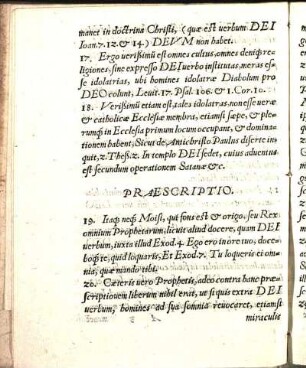 manet in doctrina Christi, (quæ est verbum DEI
Ioan. 7. 12. & 14.) DEVM non habet.
17. Ergo verißimũ est omnes cultus, omnes deniq; re-
ligiones, sine expresso DEI verbo institutas, meras es-
se idolatrias, ubi homines idolatræ Diabolum pro
DEO colunt, Levit. 17. Psal. 106. & 1. Cor. 10.
18. Verißimũ etiam est, tales idolatras non esse veræ
& catholicæ Ecclesiæ membra, etiamsi sæpe, & ple-
rumq; in Ecclesia primum locum occupant, & domina-
tionem habent, Sicut de Antichristo Paulus diserte in-
quit, 2. Theß. 2. In templo DEI sedet, cuius adventus
est secundum operationem Satanæ &c.
PRAESCRIPTIO.
19. Itaq; neq; Moisi, qui fons est & origo, seu Rex
omnium Prophetarum, licuit aliud docere, quam DEI
verbum, iuxta illud Exod. 4. Ego ero in ore tuo, doce-
boq; te, quid loquaris, Et Exod. 7. Tu loqueris ei om-
nia, quæ mando tibi.
20. Cæteris vero Prophetis, adeo contra hanc præ-
scriptionem liberum nihil erat, ut si quis extra DEI
verbum, homines ad sua somnia revocaret, etiamsi
miraculis